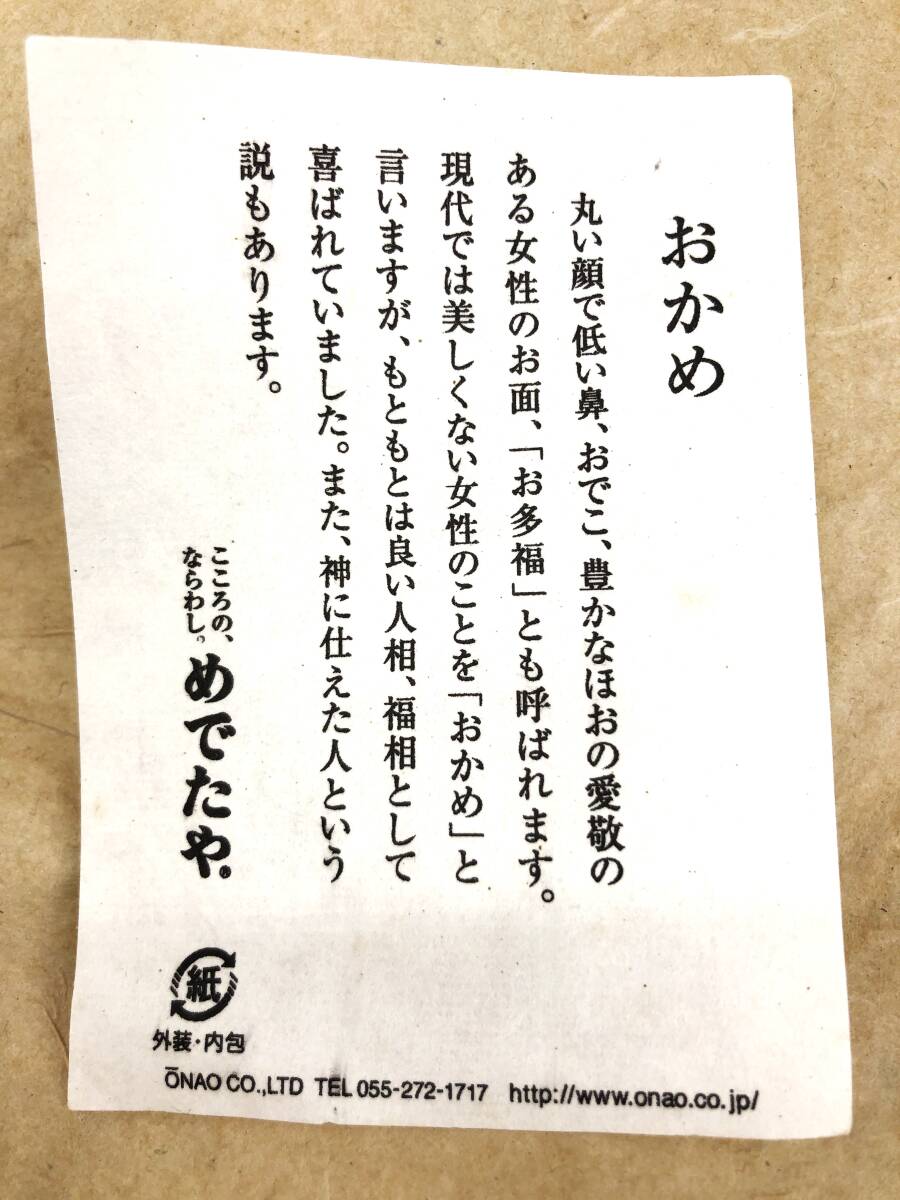 おかめ
丸い顔で低い鼻、おでこ、豊かなほおの愛敬の
ある女性のお面、「お多福」とも呼ばれます。
現代では美しくない女性のことを「おかめ」と
言いますが、もともとは良い人相、福相として
喜ばれていました。また、神に仕えた人という
説もあります。
こころの、
ならわし。
めでたや®
紙
外装・内包
ŌNAO CO.,LTD TEL 055-272-1717 http://www.onao.co.jp/